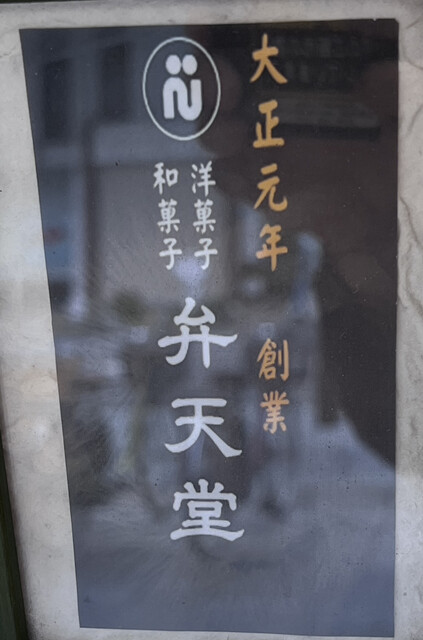 大正元年 創業
洋菓子
和菓子
弁天堂